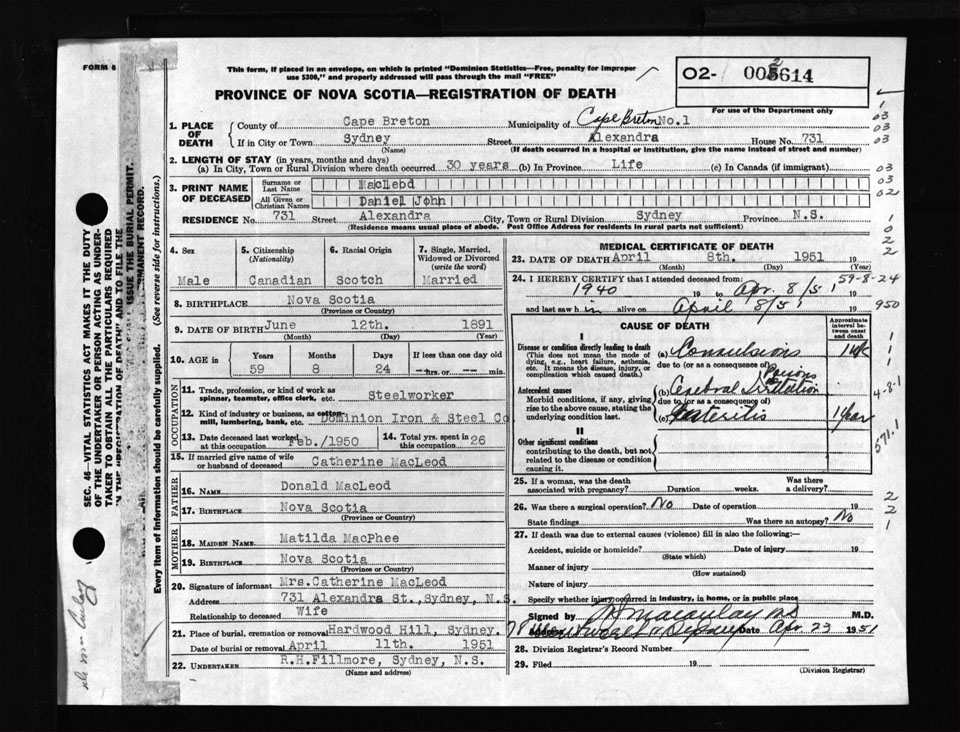 FORM 6
This form, if placed in an envelope, on which is printed "Dominion Statistics—Free, penalty for improper
use $300," and properly addressed will pass through the mail "FREE"
O2- 614
PROVINCE OF NOVA SCOTIA—REGISTRATION OF DEATH
For use of the Department only
1. PLACE OF DEATH
County of Cape Breton Municipality of Cape Breton No.1
If in City or Town Sydney Street Alexandra House No. 731
(Name) (If death occurred in a hospital or institution, give the name instead of street and number)
2. LENGTH OF STAY (in years, months and days)
(a) In City, Town or Rural District where death occurred 30 years (b) In Province Life (c) In Canada (if immigrant)
3. PRINT NAME OF DECEASED
Surname or Last Name MacLeod
All Given or Christian Names Daniel John
RESIDENCE No. 731 Street Alexandra City, Town or Rural Division Sydney Province N.S.
(Residence means usual place of abode. Post Office Address for residents in rural parts not sufficient)
4. Sex
Male
5. Citizenship (Nationality)
Canadian
6. Racial Origin
Scotch
7. Single, Married, Widowed or Divorced (write the word)
Married
8. BIRTHPLACE Nova Scotia
(Province or Country)
9. DATE OF BIRTH June 12th. 1891
(Month) (Day) (Year)
10. AGE in
Years Months Days If less than one day old
59 8 24 --hrs. or -- min.
OCCUPATION
11. Trade, profession, or kind of work as
spinner, teamster, office clerk, etc. Steelworker
12. Kind of industry or business, as cotton-
mill, lumbering, bank, etc. Dominion Iron & Steel Co
13. Date deceased last worked
at this occupation Feb./1950
14. Total yrs. spent in
this occupation 26
15. If married give name of wife
or husband of deceased Catherine MacLeod
FATHER
16. NAME Donald MacLeod
17. BIRTHPLACE Nova Scotia
(Province or Country)
MOTHER
18. MAIDEN NAME Matilda MacPhee
19. BIRTHPLACE Nova Scotia
(Province or Country)
20. Signature of informant Mrs.Catherine MacLeod
Address 731 Alexandra St.,Sydney, N.S.
Relationship to deceased Wife
21. Place of burial, cremation or removal Hardwood Hill, Sydney.
Date of burial or removal April 11th. 1951
22. UNDERTAKER R.H.Fillmore, Sydney, N.S.
(Name and address)
MEDICAL CERTIFICATE OF DEATH
23. DATE OF DEATH April 8th. 1951 19
(Month) (Day) (Year)
24. I HEREBY CERTIFY that I attended deceased from:
1940 19 to Apr. 8/51 19
and last saw h im alive on April 8/51 19
CAUSE OF DEATH
Approximate interval between onset and death
I
Disease or condition directly leading to death
(This does not mean the mode of
dying, e.g., heart failure, asthenia,
etc. It means the disease, injury, or
complication which caused death.)
(a) Convulsions
due to (or as a consequence of)
Antecedent causes
Morbid conditions, if any, giving
rise to the above cause, stating the
underlying condition last.
(b) Cerebral Irritation
due to (or as a consequence of)
(c) 1 Year
II
Other significant conditions
contributing to the death, but not
related to the disease or condition
causing it.
25. If a woman, was the death
associated with pregnancy? Duration weeks. Was there a delivery?
26. Was there a surgical operation? No Date of operation 19
State findings Was there an autopsy? No
27. If death was due to external causes (violence) fill in also the following:—
Accident, suicide or homicide? Date of injury 19
(State which)
Manner of injury
(How sustained)
Nature of injury
Specify whether injury occurred in industry, in home, or in public place
Signed by Macaulay M.D.
Date Apr. 23 1951
28. Division Registrar's Record Number
29. Filed 19
(Division Registrar)
59-8-24
950
4-8-1
571.1
SEC. 46—VITAL STATISTICS ACT MAKES IT THE DUTY
OF THE UNDERTAKER OR PERSON ACTING AS UNDER-
TAKER TO OBTAIN ALL THE PARTICULARS REQUIRED
IN THE "REGISTRATION OF DEATH" AND TO FILE THE
ISSUE THE BURIAL PERMIT.
PERMANENT RECORD.
Every item of Information should be carefully supplied. (See reverse side for instructions.)